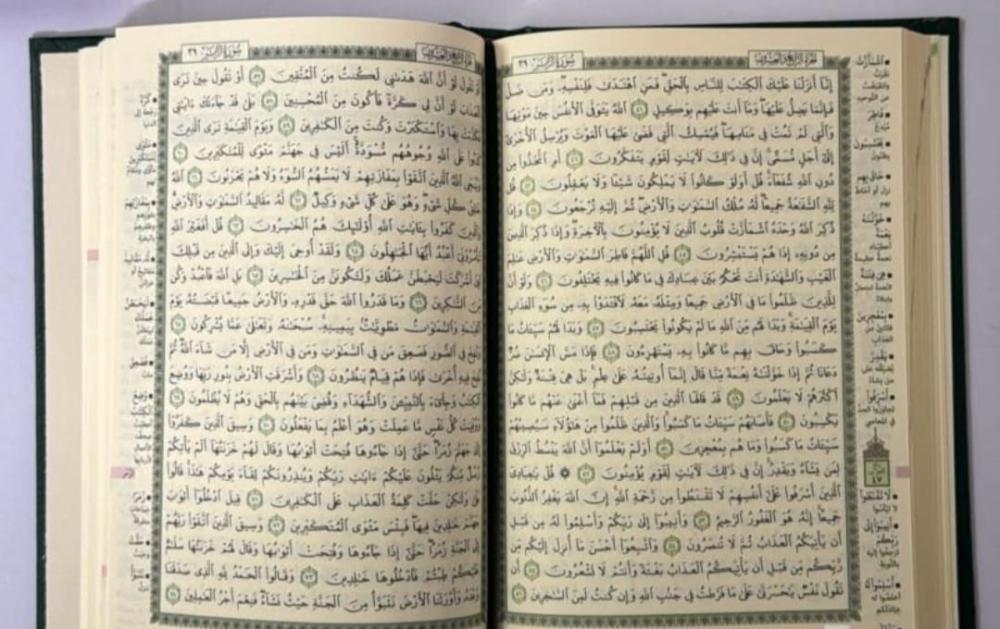 سورة الزمر ٣٩
الجزء الرابع والعشرون
إِنَّا أَنزَلْنَا عَلَيْكَ الْكِتَٰبَ لِلنَّاسِ بِالْحَقِّ فَمَنِ اهْتَدَىٰ فَلِنَفْسِهِ وَمَن ضَلَّ
فَإِنَّمَا يَضِلُّ عَلَيْهَا وَمَا أَنتَ عَلَيْهِم بِوَكِيلٍ ٤١ اللَّهُ يَتَوَفَّى الْأَنفُسَ حِينَ مَوْتِهَا
وَالَّتِي لَمْ تَمُتْ فِي مَنَامِهَا فَيُمْسِكُ الَّتِي قَضَىٰ عَلَيْهَا الْمَوْتَ وَيُرْسِلُ الْأُخْرَىٰ
إِلَىٰ أَجَلٍ مُّسَمًّى إِنَّ فِي ذَٰلِكَ لَآيَٰتٍ لِّقَوْمٍ يَتَفَكَّرُونَ ٤٢ أَمِ اتَّخَذُوا مِن
دُونِ اللَّهِ شُفَعَاءَ قُلْ أَوَلَوْ كَانُوا لَا يَمْلِكُونَ شَيْئًا وَلَا يَعْقِلُونَ ٤٣ قُل
لِّلَّهِ الشَّفَٰعَةُ جَمِيعًا لَّهُ مُلْكُ السَّمَٰوَٰتِ وَالْأَرْضِ ثُمَّ إِلَيْهِ تُرْجَعُونَ ٤٤ وَإِذَا
ذُكِرَ اللَّهُ وَحْدَهُ اشْمَأَزَّتْ قُلُوبُ الَّذِينَ لَا يُؤْمِنُونَ بِالْآخِرَةِ وَإِذَا ذُكِرَ الَّذِينَ
مِن دُونِهِ إِذَا هُمْ يَسْتَبْشِرُونَ ٤٥ قُلِ اللَّهُمَّ فَاطِرَ السَّمَٰوَٰتِ وَالْأَرْضِ عَٰلِمَ
الْغَيْبِ وَالشَّهَٰدَةِ أَنتَ تَحْكُمُ بَيْنَ عِبَادِكَ فِي مَا كَانُوا فِيهِ يَخْتَلِفُونَ ٤٦ وَلَوْ أَنَّ
لِلَّذِينَ ظَلَمُوا مَا فِي الْأَرْضِ جَمِيعًا وَمِثْلَهُ مَعَهُ لَافْتَدَوْا بِهِ مِن سُوءِ الْعَذَابِ
يَوْمَ الْقِيَٰمَةِ وَبَدَا لَهُم مِّنَ اللَّهِ مَا لَمْ يَكُونُوا يَحْتَسِبُونَ ٤٧ وَبَدَا لَهُمْ سَيِّئَاتُ مَا
كَسَبُوا وَحَاقَ بِهِم مَّا كَانُوا بِهِ يَسْتَهْزِءُونَ ٤٨ فَإِذَا مَسَّ الْإِنسَٰنَ ضُرٌّ
دَعَانَا ثُمَّ إِذَا خَوَّلْنَٰهُ نِعْمَةً مِّنَّا قَالَ إِنَّمَا أُوتِيتُهُ عَلَىٰ عِلْمٍ بَلْ هِيَ فِتْنَةٌ وَلَٰكِنَّ
أَكْثَرَهُمْ لَا يَعْلَمُونَ ٤٩ قَدْ قَالَهَا الَّذِينَ مِن قَبْلِهِمْ فَمَا أَغْنَىٰ عَنْهُم مَّا كَانُوا
يَكْسِبُونَ ٥٠ فَأَصَابَهُمْ سَيِّئَاتُ مَا كَسَبُوا وَالَّذِينَ ظَلَمُوا مِنْ هَٰؤُلَاءِ سَيُصِيبُهُمْ
سَيِّئَاتُ مَا كَسَبُوا وَمَا هُم بِمُعْجِزِينَ ٥١ أَوَلَمْ يَعْلَمُوا أَنَّ اللَّهَ يَبْسُطُ الرِّزْقَ
لِمَن يَشَاءُ وَيَقْدِرُ إِنَّ فِي ذَٰلِكَ لَآيَٰتٍ لِّقَوْمٍ يُؤْمِنُونَ ٥٢ ۞ قُلْ يَٰعِبَادِيَ
الَّذِينَ أَسْرَفُوا عَلَىٰ أَنفُسِهِمْ لَا تَقْنَطُوا مِن رَّحْمَةِ اللَّهِ إِنَّ اللَّهَ يَغْفِرُ الذُّنُوبَ
جَمِيعًا إِنَّهُ هُوَ الْغَفُورُ الرَّحِيمُ ٥٣ وَأَنِيبُوا إِلَىٰ رَبِّكُمْ وَأَسْلِمُوا لَهُ مِن قَبْلِ
أَن يَأْتِيَكُمُ الْعَذَابُ ثُمَّ لَا تُنصَرُونَ ٥٤ وَاتَّبِعُوا أَحْسَنَ مَا أُنزِلَ إِلَيْكُم مِّن
رَّبِّكُم مِّن قَبْلِ أَن يَأْتِيَكُمُ الْعَذَابُ بَغْتَةً وَأَنتُمْ لَا تَشْعُرُونَ ٥٥ أَن
تَقُولَ نَفْسٌ يَٰحَسْرَتَىٰ عَلَىٰ مَا فَرَّطتُ فِي جَنبِ اللَّهِ وَإِن كُنتُ لَمِنَ السَّٰخِرِينَ ٥٦
سورة الزمر ٣٩
الجزء الرابع والعشرون
أَوْ تَقُولَ لَوْ أَنَّ اللَّهَ هَدَىٰنِي لَكُنتُ مِنَ الْمُتَّقِينَ ٥٧ أَوْ تَقُولَ حِينَ تَرَى
الْعَذَابَ لَوْ أَنَّ لِي كَرَّةً فَأَكُونَ مِنَ الْمُحْسِنِينَ ٥٨ بَلَىٰ قَدْ جَاءَتْكَ ءَايَٰتِي
فَكَذَّبْتَ بِهَا وَاسْتَكْبَرْتَ وَكُنتَ مِنَ الْكَٰفِرِينَ ٥٩ وَيَوْمَ الْقِيَٰمَةِ تَرَى الَّذِينَ
كَذَبُوا عَلَى اللَّهِ وُجُوهُهُم مُّسْوَدَّةٌ أَلَيْسَ فِي جَهَنَّمَ مَثْوًى لِّلْمُتَكَبِّرِينَ ٦٠
وَيُنَجِّي اللَّهُ الَّذِينَ اتَّقَوْا بِمَفَازَتِهِمْ لَا يَمَسُّهُمُ السُّوءُ وَلَا هُمْ يَحْزَنُونَ ٦١ اللَّهُ
خَٰلِقُ كُلِّ شَيْءٍ وَهُوَ عَلَىٰ كُلِّ شَيْءٍ وَكِيلٌ ٦٢ لَّهُ مَقَالِيدُ السَّمَٰوَٰتِ وَالْأَرْضِ
وَالَّذِينَ كَفَرُوا بِـَٔايَٰتِ اللَّهِ أُولَٰئِكَ هُمُ الْخَٰسِرُونَ ٦٣ قُلْ أَفَغَيْرَ اللَّهِ
تَأْمُرُونِّي أَعْبُدُ أَيُّهَا الْجَٰهِلُونَ ٦٤ وَلَقَدْ أُوحِيَ إِلَيْكَ وَإِلَى الَّذِينَ مِن قَبْلِكَ
لَئِنْ أَشْرَكْتَ لَيَحْبَطَنَّ عَمَلُكَ وَلَتَكُونَنَّ مِنَ الْخَٰسِرِينَ ٦٥ بَلِ اللَّهَ فَاعْبُدْ وَكُن
مِّنَ الشَّٰكِرِينَ ٦٦ وَمَا قَدَرُوا اللَّهَ حَقَّ قَدْرِهِ وَالْأَرْضُ جَمِيعًا قَبْضَتُهُ يَوْمَ
الْقِيَٰمَةِ وَالسَّمَٰوَٰتُ مَطْوِيَّٰتٌ بِيَمِينِهِ سُبْحَٰنَهُ وَتَعَٰلَىٰ عَمَّا يُشْرِكُونَ ٦٧
وَنُفِخَ فِي الصُّورِ فَصَعِقَ مَن فِي السَّمَٰوَٰتِ وَمَن فِي الْأَرْضِ إِلَّا مَن شَاءَ اللَّهُ ثُمَّ
نُفِخَ فِيهِ أُخْرَىٰ فَإِذَا هُمْ قِيَامٌ يَنظُرُونَ ٦٨ وَأَشْرَقَتِ الْأَرْضُ بِنُورِ رَبِّهَا وَوُضِعَ
الْكِتَٰبُ وَجِايءَ بِالنَّبِيِّينَ وَالشُّهَدَاءِ وَقُضِيَ بَيْنَهُم بِالْحَقِّ وَهُمْ لَا يُظْلَمُونَ ٦٩
وَوُفِّيَتْ كُلُّ نَفْسٍ مَّا عَمِلَتْ وَهُوَ أَعْلَمُ بِمَا يَفْعَلُونَ ٧٠ وَسِيقَ الَّذِينَ كَفَرُوا
إِلَىٰ جَهَنَّمَ زُمَرًا حَتَّىٰ إِذَا جَاءُوهَا فُتِحَتْ أَبْوَٰبُهَا وَقَالَ لَهُمْ خَزَنَتُهَا أَلَمْ يَأْتِكُمْ
رُسُلٌ مِّنكُمْ يَتْلُونَ عَلَيْكُمْ ءَايَٰتِ رَبِّكُمْ وَيُنذِرُونَكُمْ لِقَاءَ يَوْمِكُمْ هَٰذَا قَالُوا
بَلَىٰ وَلَٰكِنْ حَقَّتْ كَلِمَةُ الْعَذَابِ عَلَى الْكَٰفِرِينَ ٧١ قِيلَ ادْخُلُوا أَبْوَٰبَ
جَهَنَّمَ خَٰلِدِينَ فِيهَا فَبِئْسَ مَثْوَى الْمُتَكَبِّرِينَ ٧٢ وَسِيقَ الَّذِينَ اتَّقَوْا رَبَّهُمْ
إِلَى الْجَنَّةِ زُمَرًا حَتَّىٰ إِذَا جَاءُوهَا وَفُتِحَتْ أَبْوَٰبُهَا وَقَالَ لَهُمْ خَزَنَتُهَا سَلَٰمٌ
عَلَيْكُمْ طِبْتُمْ فَادْخُلُوهَا خَٰلِدِينَ ٧٣ وَقَالُوا الْحَمْدُ لِلَّهِ الَّذِي صَدَقَنَا
وَعْدَهُ وَأَوْرَثَنَا الْأَرْضَ نَتَبَوَّأُ مِنَ الْجَنَّةِ حَيْثُ نَشَاءُ فَنِعْمَ أَجْرُ الْعَٰمِلِينَ ٧٤